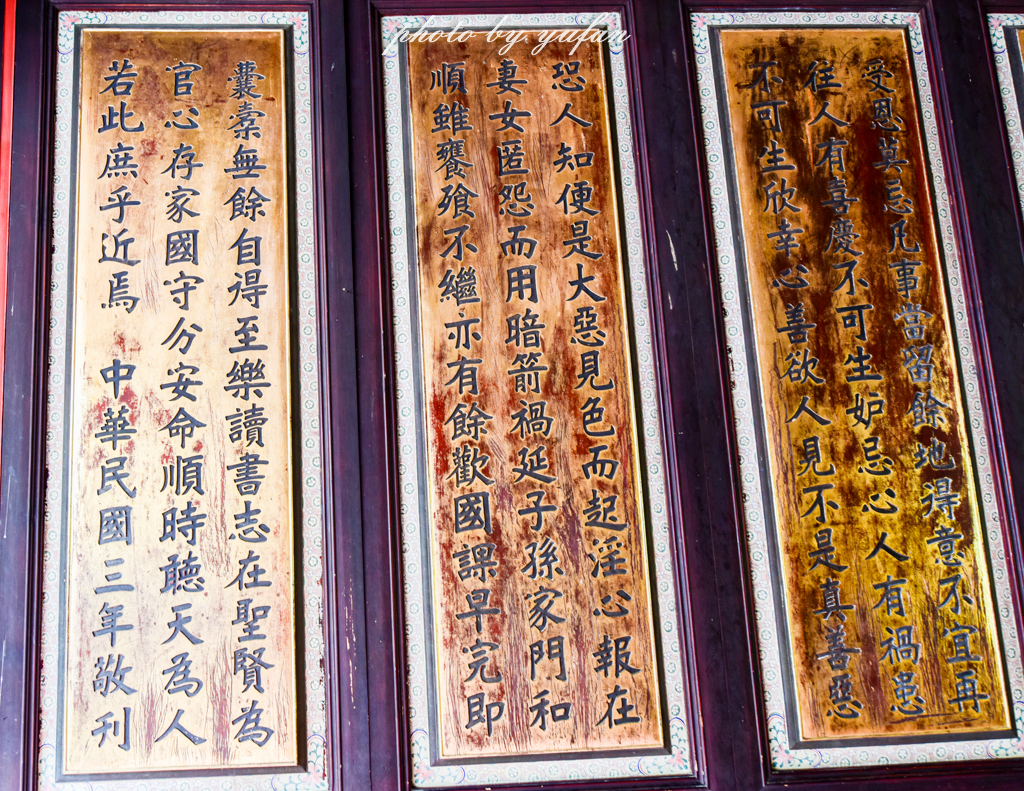 photo by yufan
受恩莫忘凡事當留餘地得意不宜再
往人有喜慶不可生妒忌心人有禍患
不可生欣幸心善欲人見不是真善惡
恐人知便是大惡見色而起淫心報在
妻女匿怨而用暗箭禍延子孫家門和
順雖饔飧不繼亦有餘歡國課早完即
囊橐無餘自得至樂讀書志在聖賢為
官心存家國守分安命順時聽天為人
若此庶乎近焉 中華民國三年敬刊